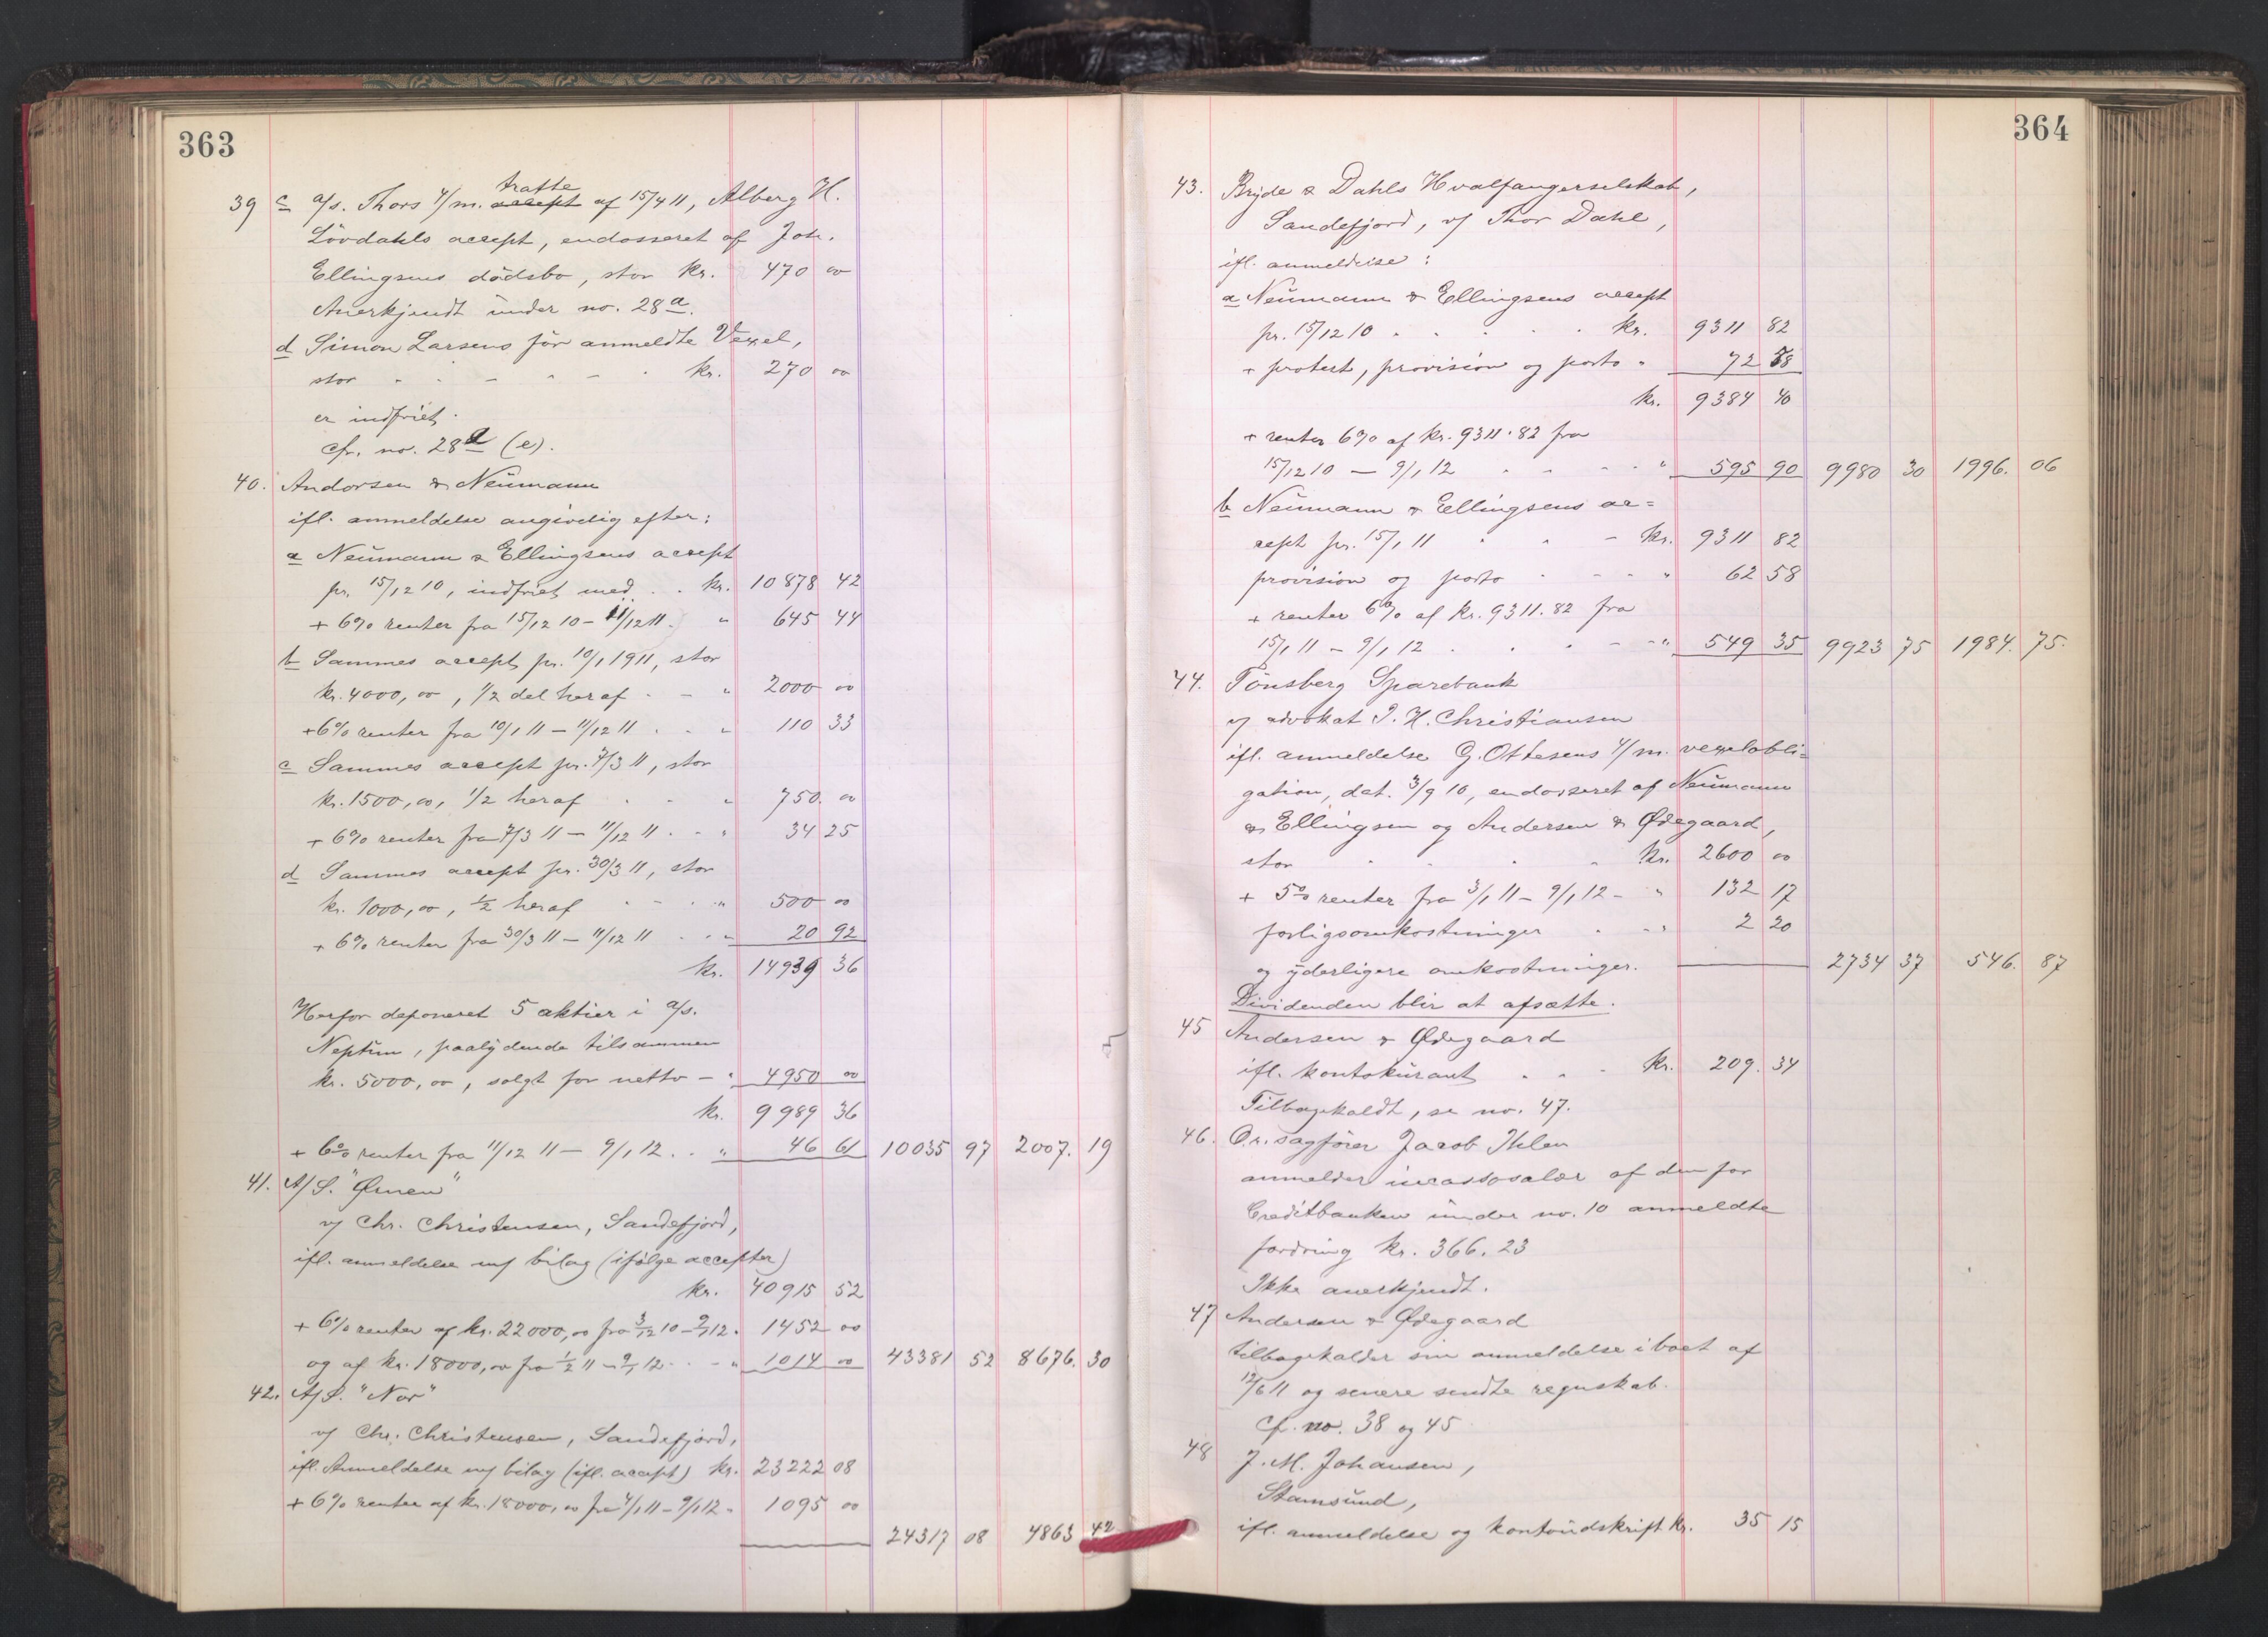 363
tratte
39 c a/s. Thors 4/m. accept af 15/4 11, Alberg H.
Lövdahls accept, endosseret af Joh.
Ellingsens dödsbo, stor kr. 470 00
Anerkjendt under no. 28 a.
d Simon Larsens før anmeldte Vexel,
stor - - - - kr. 270 00
er indfriet.
cfr. no. 28 a (e).
40. Andorsen & Neumann
ifl. anmeldelse angivelig efter:
a Neumann & Ellingsens accept
pr. 15/12 10, indfriet med . . kr. 10878 42
+ 6% renter fra 15/12 10 - 11/12 11 . " 645 44
b Sammes accept pr. 10/1 1911, stor
kr. 4000,00, 1/2 del heraf - - " 2000 00
+ 6% renter fra 10/1 11 - 11/12 11 . . " 110 33
c Sammes accept pr. 7/3 11, stor
kr. 1500,00, 1/2 heraf . . " 750. 00
+ 6% renter fra 7/3 11 - 11/12 11 . - " 34 25
d Sammes accept pr. 30/3 11, stor
kr. 1000,00, 1/2 heraf . - . " 500 00
+ 6% renter fra 30/3 11 - 11/12 11 . . " 20 92
kr. 14939 36
Herfor deponeret 5 aktier i a/s.
Neptun, paalydende tilsammen
kr. 5000,00, solgt for netto - " 4950 00
kr. 9989 36
+ 6% renter fra 11/12 11 - 9/1 12 . . " 46 61 10035 97 2007. 19
41. A/S. "Ørnen"
v/ Chr. Christensen, Sandefjord,
ifl. anmeldelse m/ bilag (ifølge accepter)
kr. 40915 52
+ 6% renter af kr. 22000,00 fra 3/12 10 - 9/1 12 . 1452 00
og af kr. 18000,00 fra 1/2 11 - 9/1 12 - . - " 1014 00 43381 52 8676. 30
42. A/S. "Nor"
v/ Chr. Christensen, Sandefjord,
ifl. Anmeldelse m/ bilag (ifl. accept) kr. 23222 08
+ 6% renter af kr. 18000,00 fra 4/1 11 - 9/1 12 - 1095 00
24317 08 4863 42
364
43. Bryde & Dahls Hvalfangerselskab,
Sandefjord, v/ Thor Dahl,
ifl. anmeldelse:
a Neumann & Ellingsens accept
pr. 15/12 10 . . . . . kr. 9311 82
+ protest, provision og porto " 72 58
kr. 9384 40
+ renter 6% af kr. 9311.82 fra
15/12 10 - 9/1 12 . . . . " 595 90 9980 30 1996. 06
b Neumann & Ellingsens ac=
cept pr. 15/1 11 . . - kr. 9311 82
provision og porto . - - " 62 58
+ renter 6% af kr. 9311.82 fra
15/1 11 - 9/1 12 . . . - - " 549 35 9923 75 1984. 75.
44. Tönsberg Sparebank
v/ advokat J. H. Christiansen
ifl. anmeldelse G. Ottesens 4/m. vexelobli=
gation, dat. 3/9 10, endosseret af Neumann
& Ellingsen og Andersen & Ødegaard,
stor . . . . kr. 2600 00
+ 5% renter fra 3/1 11 - 9/1 12 - " 132 17
forligsomkostninger . . " 2 20
og yderligere omkostninger. 2734 37 546. 87
Dividenden blir at afsætte.
45 Andersen & Ødegaard
ifl. kontokurant . . - kr. 209. 34
Tilbagekaldt, se no. 47.
46. O.r.sagfører Jacob Ihlen
anmelder incassosalær af den for
Creditbanken under no. 10 anmeldte
fordring kr. 366.23
Ikke anerkjendt.
47 Andersen & Ødegaard
tilbagekalder sin anmeldelse i boet af
12/6 11 og senere sendte regnskab.
Cf. no. 38 og 45
48 J. M. Johansen,
Stamsund,
ifl. anmeldelse og kontoudskrift kr. 35 15